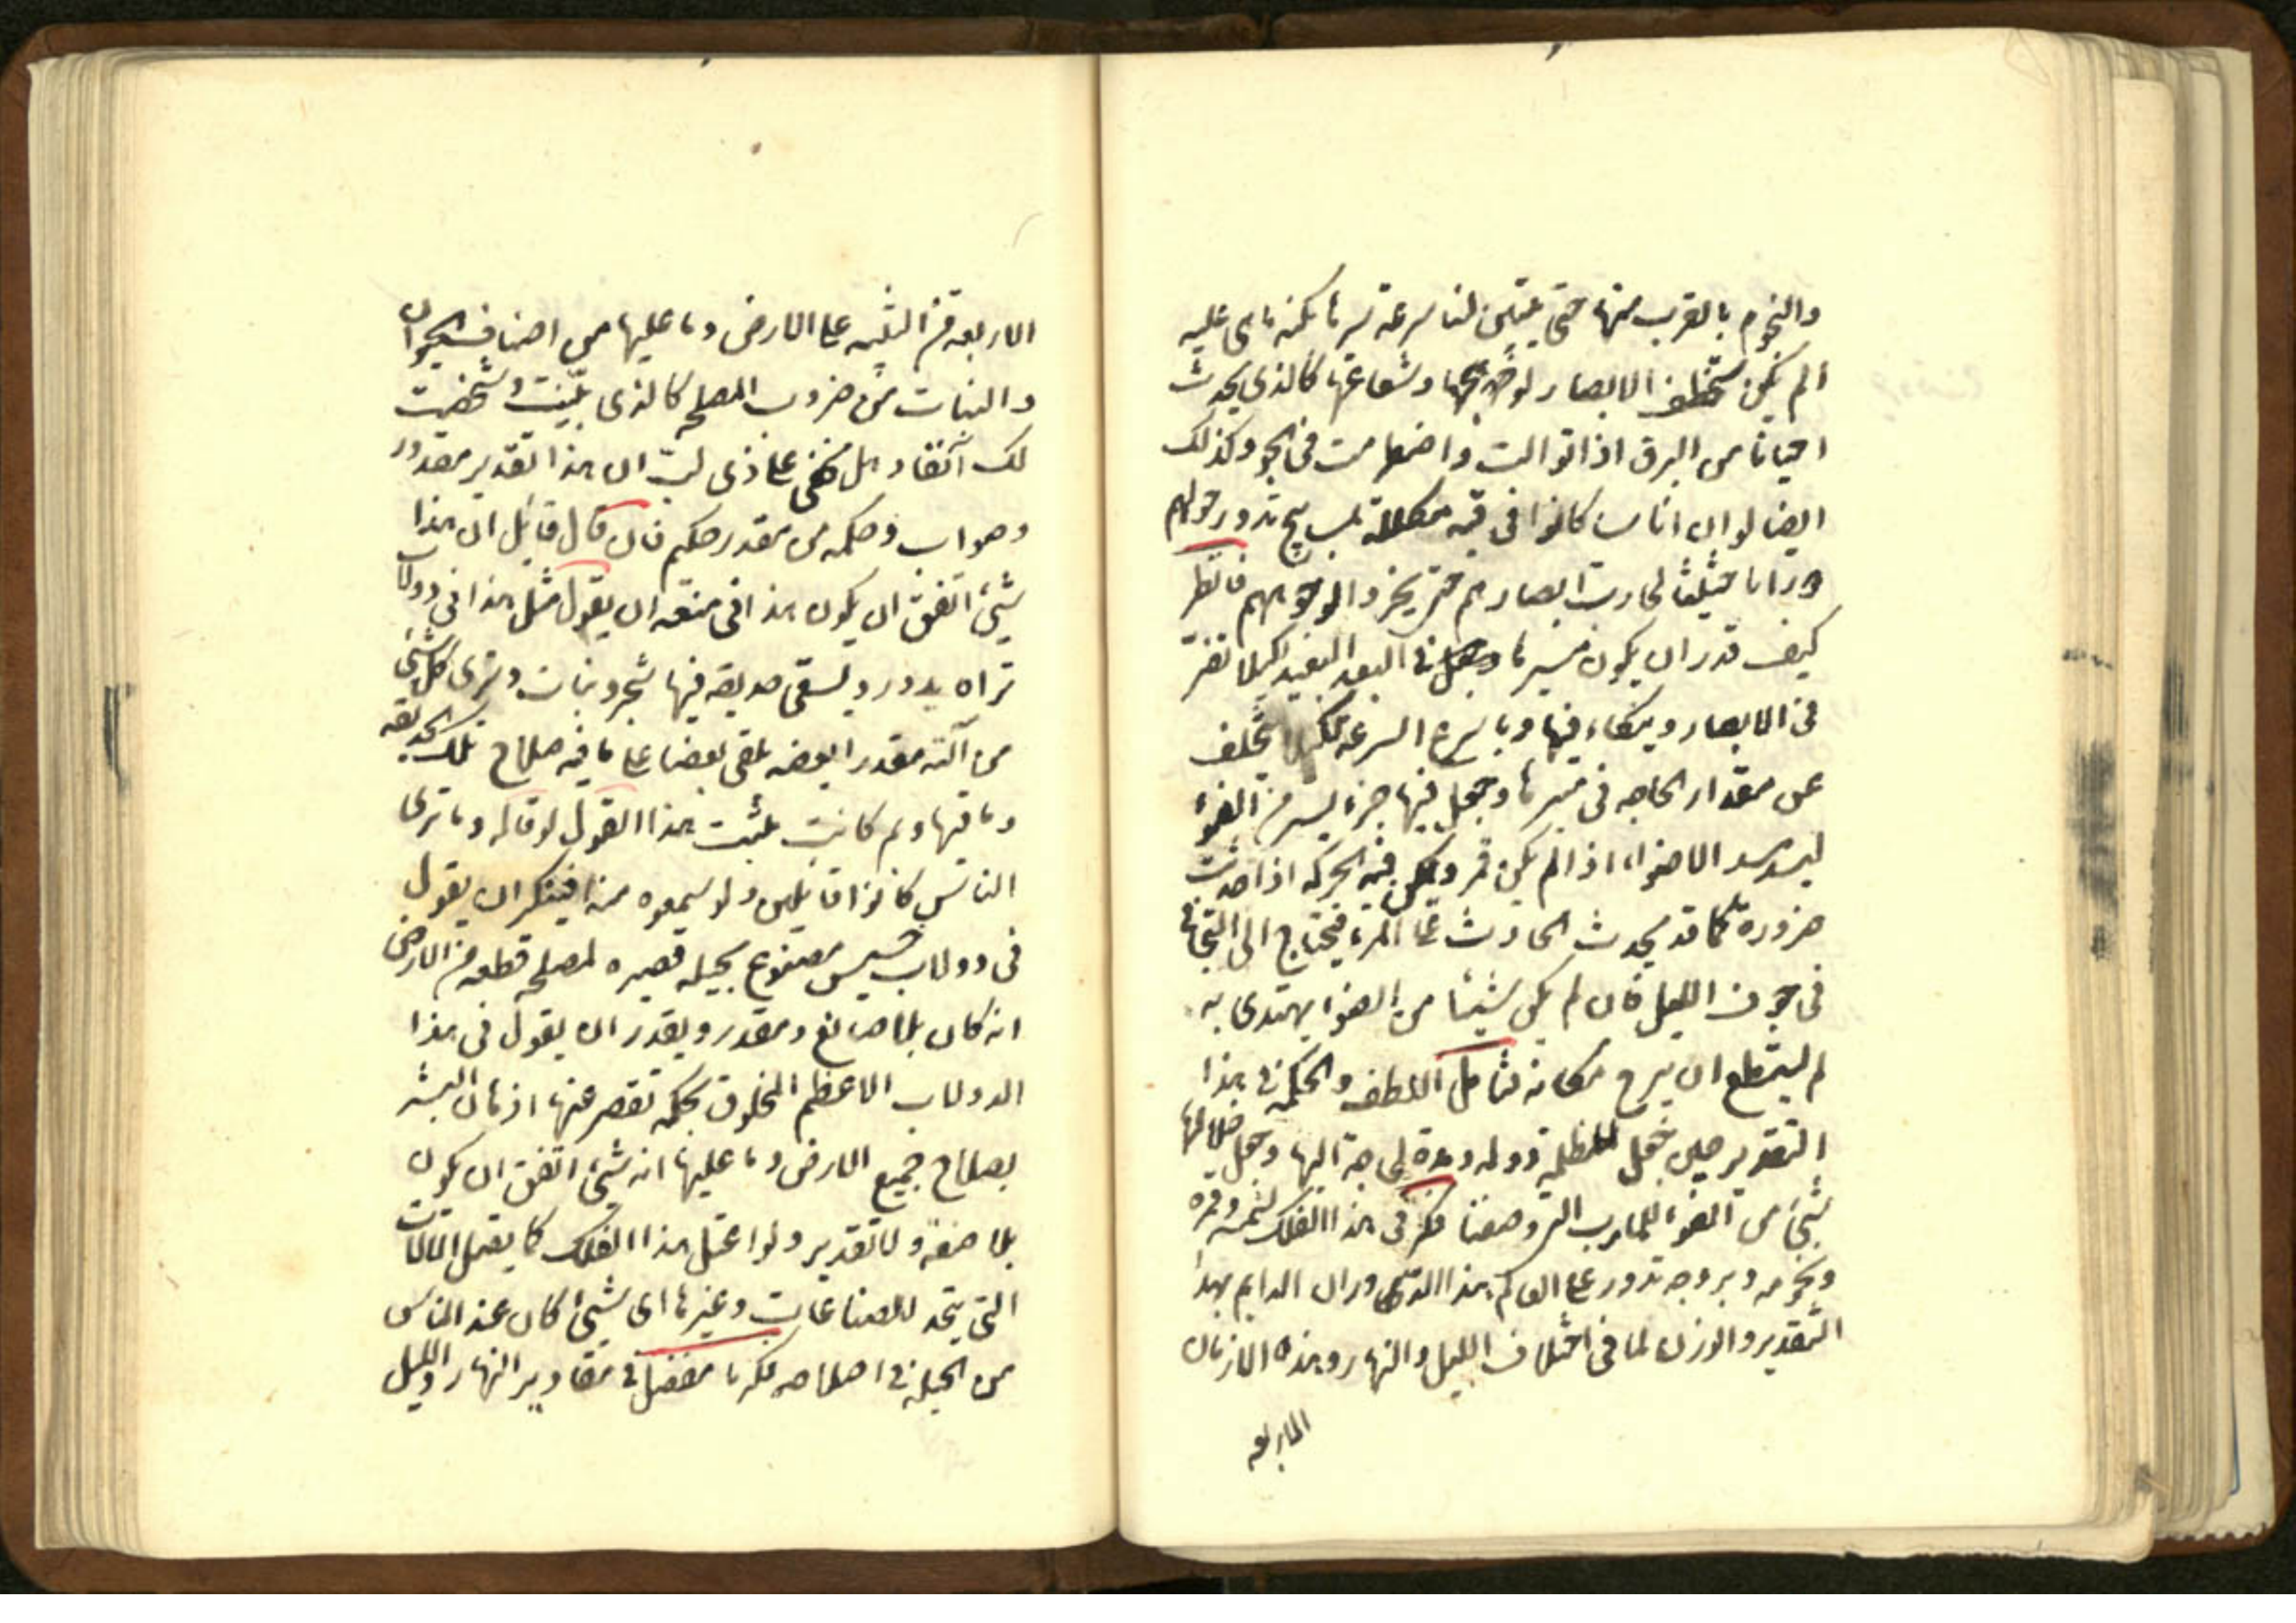 والنجوم بالقرب منها حتى يتبين لنا سرعة سيرها بكنه ما هي عليه
الم يكن ستخطف الابصار لوهجها وشعاعها كالذي يحدث
احيانا من البرق اذا توالت واضطرمت في الجو وكذلك
ايضا لو ان اناسا كانوا في قبة مكللة بمصابيح تدور حولهم
دورانا حثيثا لحارت ابصارهم حتى يخروا لوجوههم فانظر
كيف قدر ان يكون مسيرها في البعد البعيد لكيلا تضر
في الابصار وينكاء فيها وباسرع السرعة لكيلا تتخلف
عن مقدار الحاجه في مسيرها وجعل فيها جزء يسير من الضوء
ليسد مسد الاضواء اذا لم يكن قمر ويمكن فيه الحركه اذا حدثت
ضرورة كما قد يحدث الحادث على المرء فيحتاج الى التجافي
في جوف الليل فان لم يكن شيئا من الضوء يهتدى به
لم يستطع ان يبرح مكانه فتامل اللطف والحكمة في هذا
التقدير حين جعل للظلمة دولة ومدة لحاجة اليها وجعل خلالها
شئ من الضوء للمارب التي وصفنا فكر في هذا الفلك بشمسه وقمره
ونجومه وبروجه تدور على العالم هذا الدوران الدايم بهذا
التقدير والوزن لما في اختلاف الليل والنهار وهذه الازمان
الاربعه
الاربعه من التنبيه على الارض وما عليها من اصناف الحيوان
والنبات من ضروب المصلحه كالذى بينت وشخصت
لك آنفا وهل يخفى على ذى لب ان هذا تقدير مقدر
وصواب وحكمه من مقدر حكيم فان قال قائل ان هذا
شئ اتفق ان يكون هذا فما منعه ان يقول مثل هذا في دولاب
تراه يدور ويسقى حديقه فيها شجر ونبات وترى كل شئ
من آلته مقدر ابعضه يلقى بعضا على ما فيه صلاح تلك الحديقه
وما فيها وبم كانت يثبت هذا القول لو قاله وما ترى
الناس كانوا قائلين ولو سمعوه منه افينكر ان يقول
في دولاب خسيس مصنوع بحيله قصيره لمصلحه قطعه من الارض
انه كان بلا صانع ومقدر ويقدر ان يقول في هذا
الدولاب الاعظم المخلوق بحكمه تقصر عنها اذهان البشر
بصلاح جميع الارض وما عليها انه شئ اتفق ان يكون
بلا صنعة ولا تقدير ولو اعتل هذا الفلك كما يعتل الالات
التي يتخذ للصناعات وغيرها اى شئ كان عند الناس
من الحيلة في اصلاحه فكر يا مفضل في مقادير النهار والليل